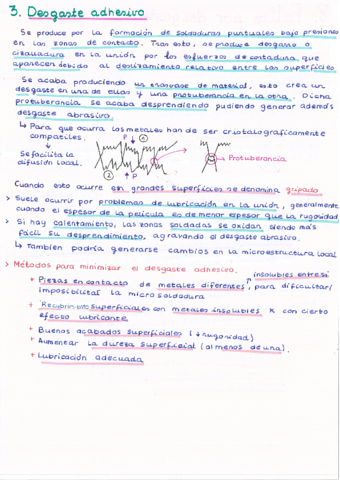 3. Desgaste adhesivo
Se produce por la formación de soldaduras puntuales bajo presiones
en las zonas de contacto. Tras esto, se produce desgarro o
cizalladura en la unión por los esfuerzos de cortadura, que
aparecen debido al deslizamiento relativo entre las superficies
Se acaba produciendo un trasvase de material, esto crea un
desgaste en una de ellas y una protuberancia en la otra. Dicha
protuberancia se acaba desprendiendo pudiendo generar además
desgaste abrasivo.
↳ Para que ocurra los metales han de ser cristalográficamente
compatibles.
Se facilita la
difusión local.
P
①
②
P
Protuberancia
Cuando esto ocurre en grandes superficies se denomina gripado
> Suele ocurrir por problemas de lubricación en la unión, generalmente
cuando el espesor de la película es de menor espesor que la rugosidad
> Si hay calentamiento, las zonas soldadas se oxidan siendo más
fácil su desprendimiento, agravando el desgaste abrasivo.
↳ También podría generarse cambios en la microestructura local
> Métodos para minimizar el desgaste adhesivo.
insolubles entre sí
+ Piezas en contacto de metales diferentes, para dificultar/
imposibilitar la micro soldadura
+ Recubrir superficies con metales insolubles x con cierto
efecto lubricante
+ Buenos acabados superficiales (↓rugosidad)
+ Aumentar la dureza superficial (al menos de una).
+ Lubricación adecuada